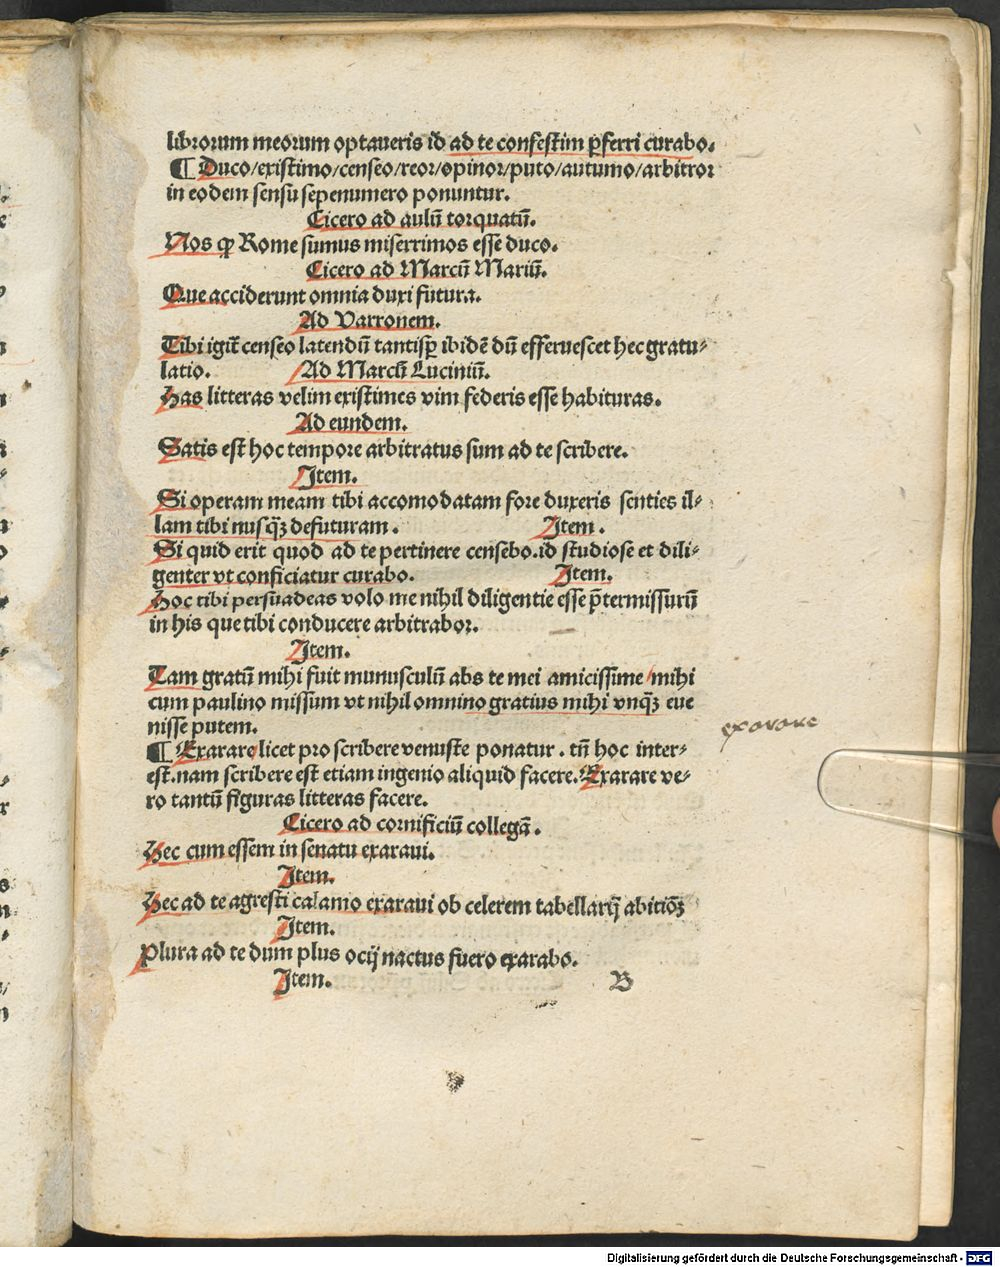 librorum meorum optaueris id ad te confestim p̱ferri curabo.
¶ Duco/existimo/censeo/reor/opinor/puto/autumo/arbitror
in eodem sensu sepenumero ponuntur.
Cicero ad aulū torquatū.
Nos ꝙ Rome sumus miserrimos esse duco.
Cicero ad Marcū Mariū.
Que acciderunt omnia duxi futura.
Ad Varronem.
Tibi igit̄ censeo latendū tantisꝑ ibidē dū efferuescet hec gratu⸗
latio. Ad Marcū Luciniū.
Has litteras velim existimes vim federis esse habituras.
Ad eundem.
Satis est hoc tempore arbitratus sum ad te scribere.
Item.
Si operam meam tibi accomodatam fore duxeris senties il⸗
lam tibi nusq̄ꝫ defuturam. Item.
Si quid erit quod ad te pertinere censebo.id studiose et dili⸗
genter vt conficiatur curabo. Item.
Hoc tibi persuadeas volo me nihil diligentie esse p̄termissurū
in his que tibi conducere arbitrabor.
Item.
Tam gratū mihi fuit munusculū abs te mei amicissime/mihi
cum paulino missum vt nihil omnino gratius mihi vnq̄ꝫ eue
nisse putem.
¶ Exarare licet pro scribere venuste ponatur. tn̄ hoc inter⸗
est.nam scribere est etiam ingenio aliquid facere. Exarare ve⸗
ro tantū figuras litteras facere.
exarare
Cicero ad cornificiū collegā.
Hec cum essem in senatu exaraui.
Item.
Hec ad te agresti calamo exaraui ob celerem tabellarij abitiōꝫ
Item.
Plura ad te dum plus ocij nactus fuero exarabo.
Item. B
Digitalisierung gefördert durch die Deutsche Forschungsgemeinschaft - DFG